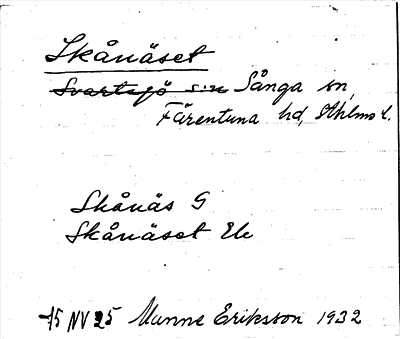 Skånäset
Svartsjö s:n Sånga sn,
Färentuna hd, Sthlms l.
Skånäs G
Skånäset Ek
75 NV 25 Manne Eriksson 1932